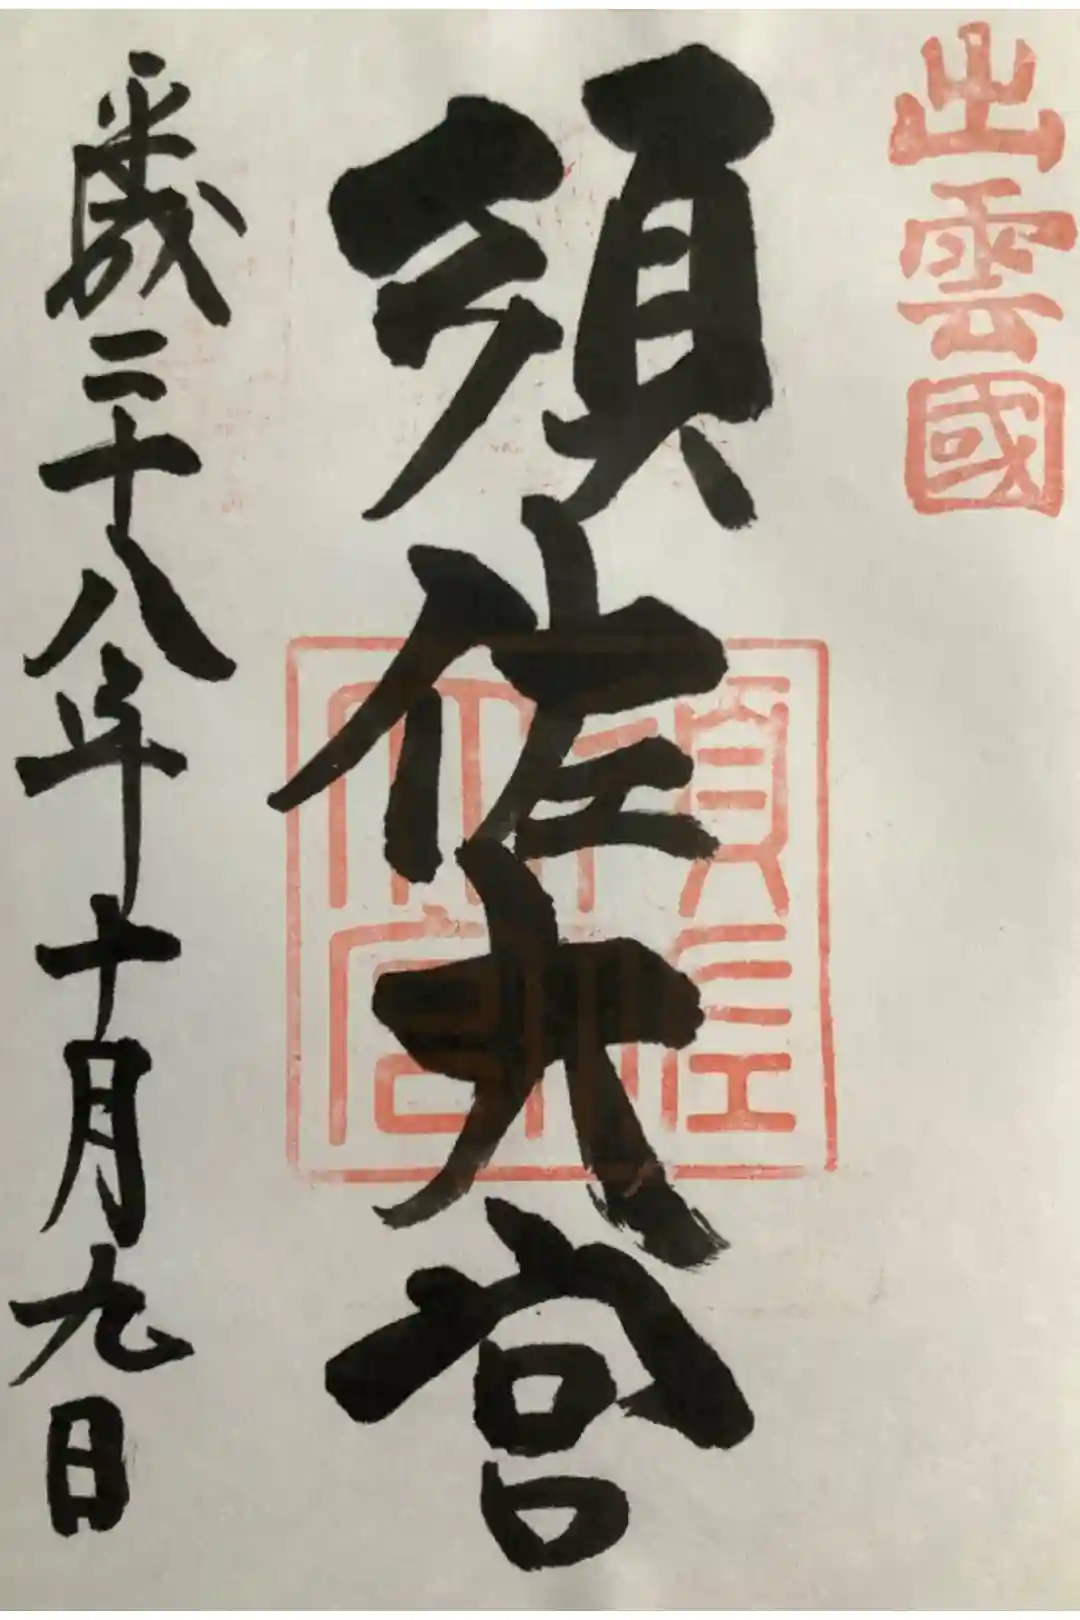 出雲國
須佐大宮
須佐大宮
平成二十八年十月九日